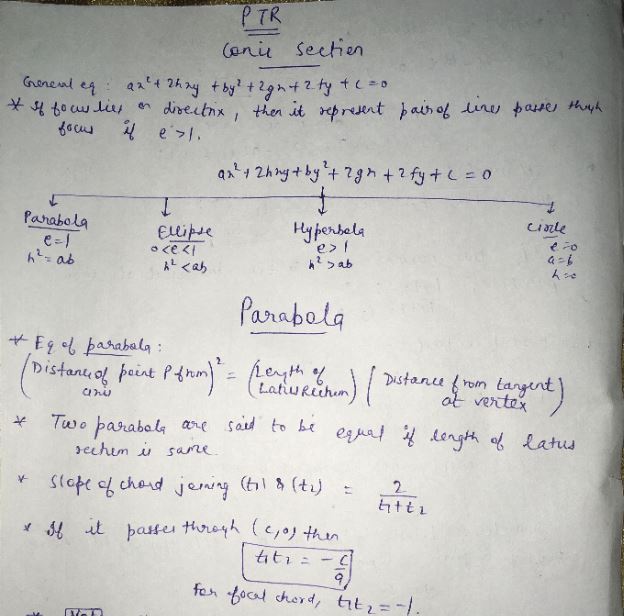 PTR
Conic Section
General eq : ax² + 2hxy + by² + 2gx + 2fy + c = 0
* If focus lies on directrix, then it represent pair of lines passes through
focus if e > 1.
ax² + 2hxy + by² + 2gx + 2fy + c = 0
Parabola Ellipse Hyperbola Circle
e=1 0<e<1 e>1 e=0
h² = ab h² < ab h² > ab a=b
h=0
Parabola
* Eq of parabola :
(Distance of point P from axis)² = (Length of Latus Rectum) (Distance from tangent at vertex)
* Two parabola are said to be equal if length of latus
rectum is same.
* Slope of chord joining (t1) & (t2) = 2/(t1+t2)
* If it passes through (c,0) then
t1t2 = -c/a
For focal chord, t1t2 = -1.